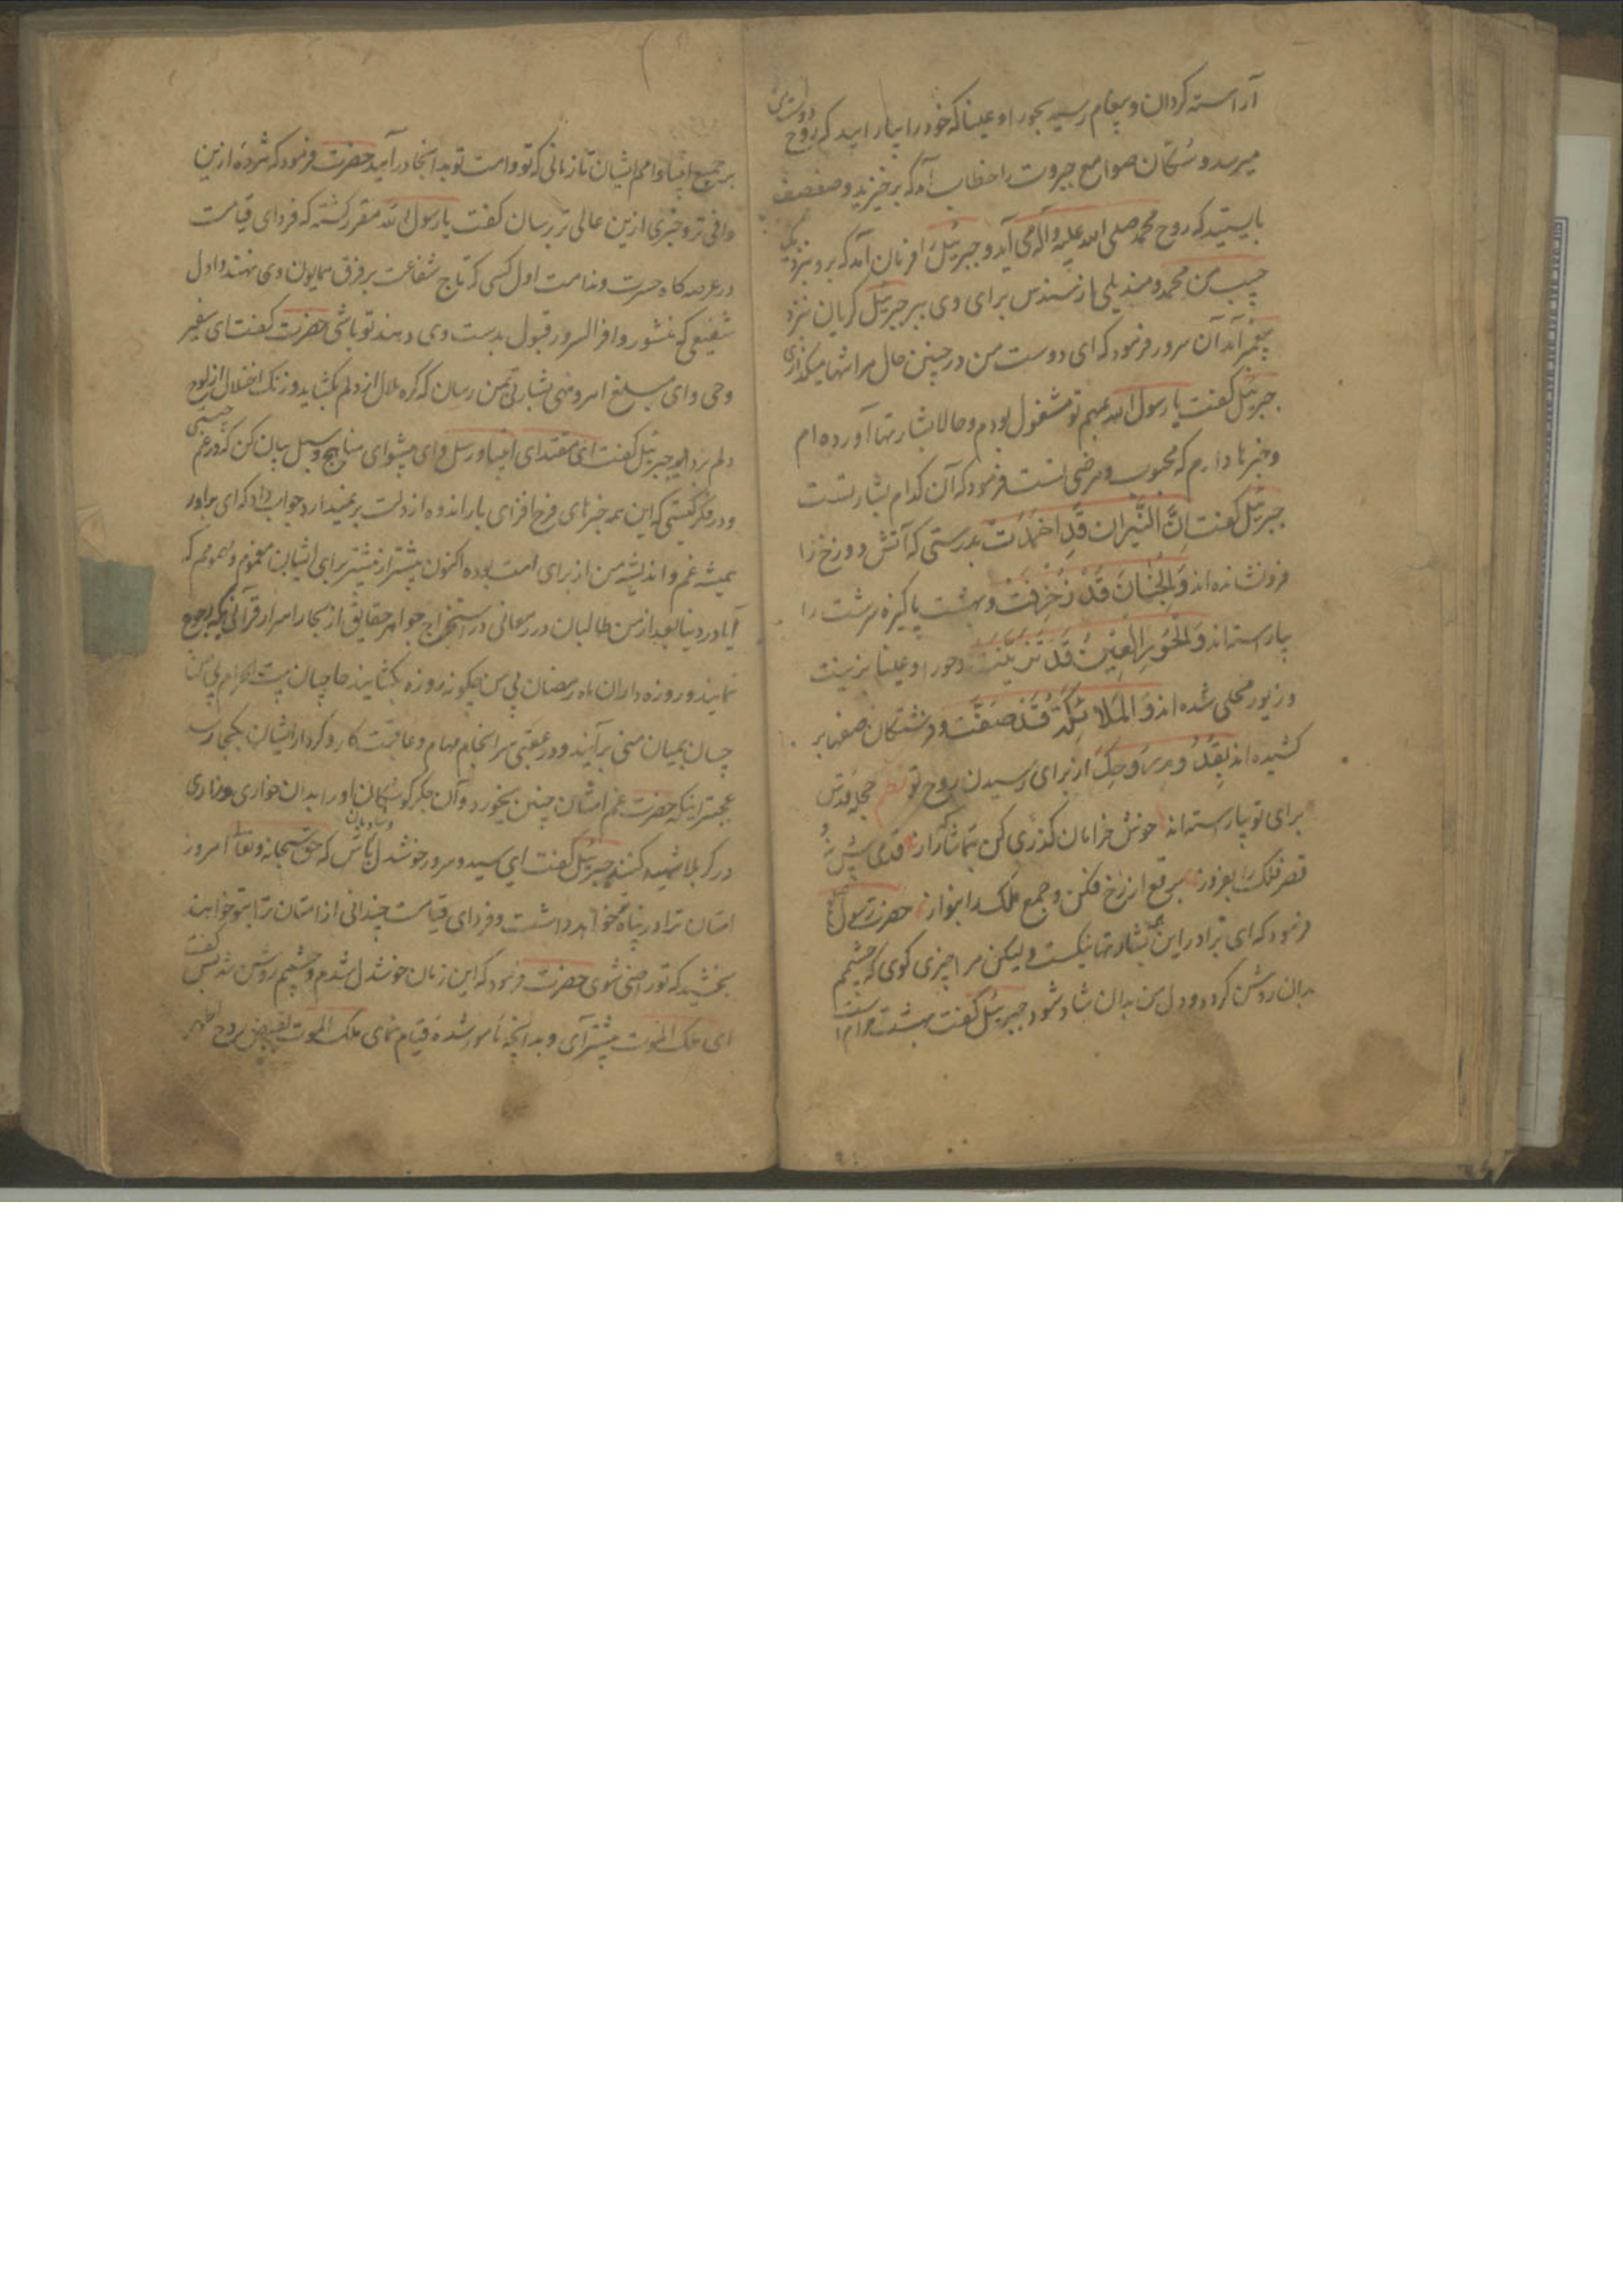 آراسته کردان و پیغام رسید بحور اوعیناکه خود را بیارایید که روح دوست من
میرسد و سکان صوامع جبروت را خطاب آمد که برخیزید و صف صف
بایستید که روح محمد صلی الله علیه وآله می آید و جبرئیل را فرمان آمد که برو بنزدیک
حبیب من محمد و مندیلی از سندس برای وی ببر جبرئیل کریان نزد
پیغمبر آمد آن سرور فرمود که ای دوست من در چنین حال مرا تنها میکذاری
جبرئیل کفت یا رسول الله بمهم تو مشغول بودم و حالا بشارتها آورده ام
وخبرها دارم که محبوب و مرضی تست فرمود که آن کدام بشارتست
جبرئیل کفت اِنَّ النّیران قَدِ اخمدَت بدرستی که آتش دوزخ را
فرونشانده اند وَالجِنَانَ قَدْ زُخْرِفَتْ و بهشت پاکیزه سرشت را
بیاراسته اند وَالحُورِ العِینِ قَدْ تَزَیَّنَتْ و حور اوعینا بزینت
و زیور محلی شده اند وَالمَلائِکَةُ قَدْ صَفَّت و فرشتکان صفها بر
کشیده اند بِقُدُومِ رُوحِکَ از برای رسیدن روح تو نظم حجله قدس
برای تو بیاراسته اند خوش خرامان کذری کن بتماشاکه راز قدمی پیش نه و
قصر فلک را بفروز برقع از رخ فکن و جمع ملک را بنواز حضرت رسول
فرمود که ای برادر این همه بشارتها نیکست ولیکن مرا چیزی کوی که چشمم
بدان روشن کردد و دل من بدان شاد شود جبرئیل کفت بهشت حرامست
بر جمیع انبیاء و امم ایشان تا زمانی که تو و امت تو بدانجا درآیید حضرت فرمود که مژدهٔ ازین
وافی تر و خبری ازین عالی تر برسان کفت یا رسول الله مقرر کشته که فردای قیامت
در عرصه کاه حسرت و ندامت اول کسی که تاج شفاعت بر فرق همایون وی نهند و اول
شفیعی که منشور وافر السرور قبول بدست وی دهند تو باشی حضرت کفت ای سفیر
وحی و ای مبلغ امر و نهی بشارتی بمن رسان که کره ملال از دلم بکشاید و زنک اختلال از لوح
دلم بزداید جبرئیل کفت ای مقتدای انبیا و رسل و ای پیشوای مناهج و سبل بیان کن که در غم چیستی
و در فکر کیستی که این همه خبرهای فرح افزای بار اندوه از دلت برنمیدارد جواب داد که ای برادر
همیشه غم و اندیشه من از برای امت بوده اکنون بیشتر از پیشتر برای ایشان مغموم و مهمومم که
آیا در دنیا بعد از من طالبان درر معانی در استخراج جواهر حقایق از بحار اسرار قرآنی بکه رجوع
نمایند و روزه داران ماه رمضان بی من چکونه روزه بکشایند حاجیان بیت الحرام بی من
چسان بمیان منی برآیند و در عقبی سرانجام مهام و عاقبت کار و کردار ایشان بکجا رسد
عجبتر اینکه حضرت غم امتان چنین میخورد و آن جکرکوشکان او را بدان خواری و زاری
در کربلا شهید کنند جبرئیل کفت ای سید و سرور خوشدل و شادمان باش که حق سبحانه و تعالی امروز
امتان ترا در پناه تو خواهد داشت و فردای قیامت چندانی از امتان ترا بتو خواهند
بخشید که تو راضی شوی حضرت فرمود که این زمان خوشدل شدم و چشمم روشن شد پس کفت
ای ملک الموت پیشتر آی و بدانچه مامور شدهٔ قیام نمای ملک الموت بقبض روح